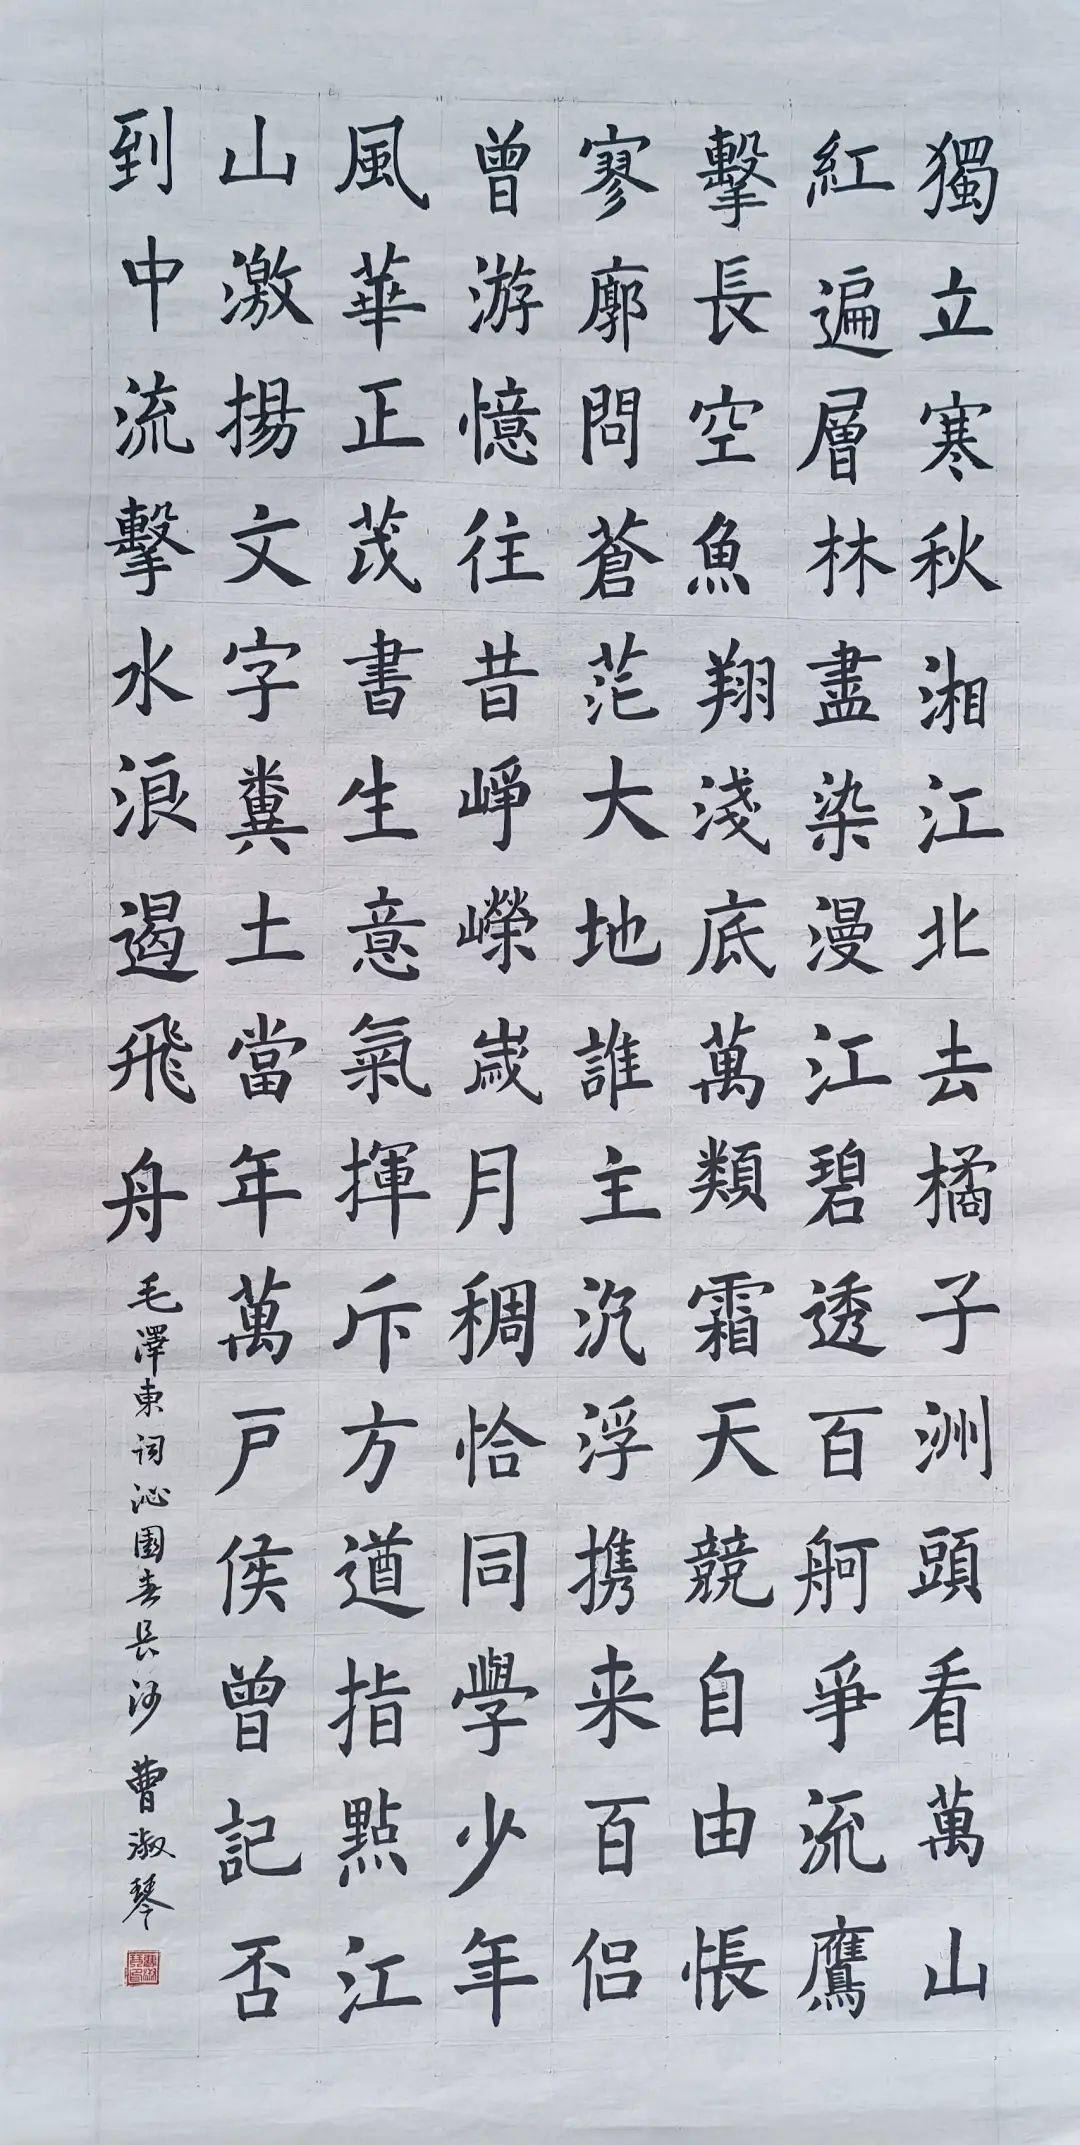 獨立寒秋湘江北去橘子洲頭看萬山
紅遍層林盡染漫江碧透百舸爭流鷹
擊長空魚翔淺底萬類霜天競自由悵
寥廓問蒼茫大地誰主沉浮携来百侣
曾游憶往昔崢嶸歲月稠恰同學少年
風華正茂書生意氣揮斥方遒指點江
山激揚文字糞土當年萬戶侯曾記否
到中流擊水浪遏飛舟
毛澤東词沁園春長沙 曹淑琴